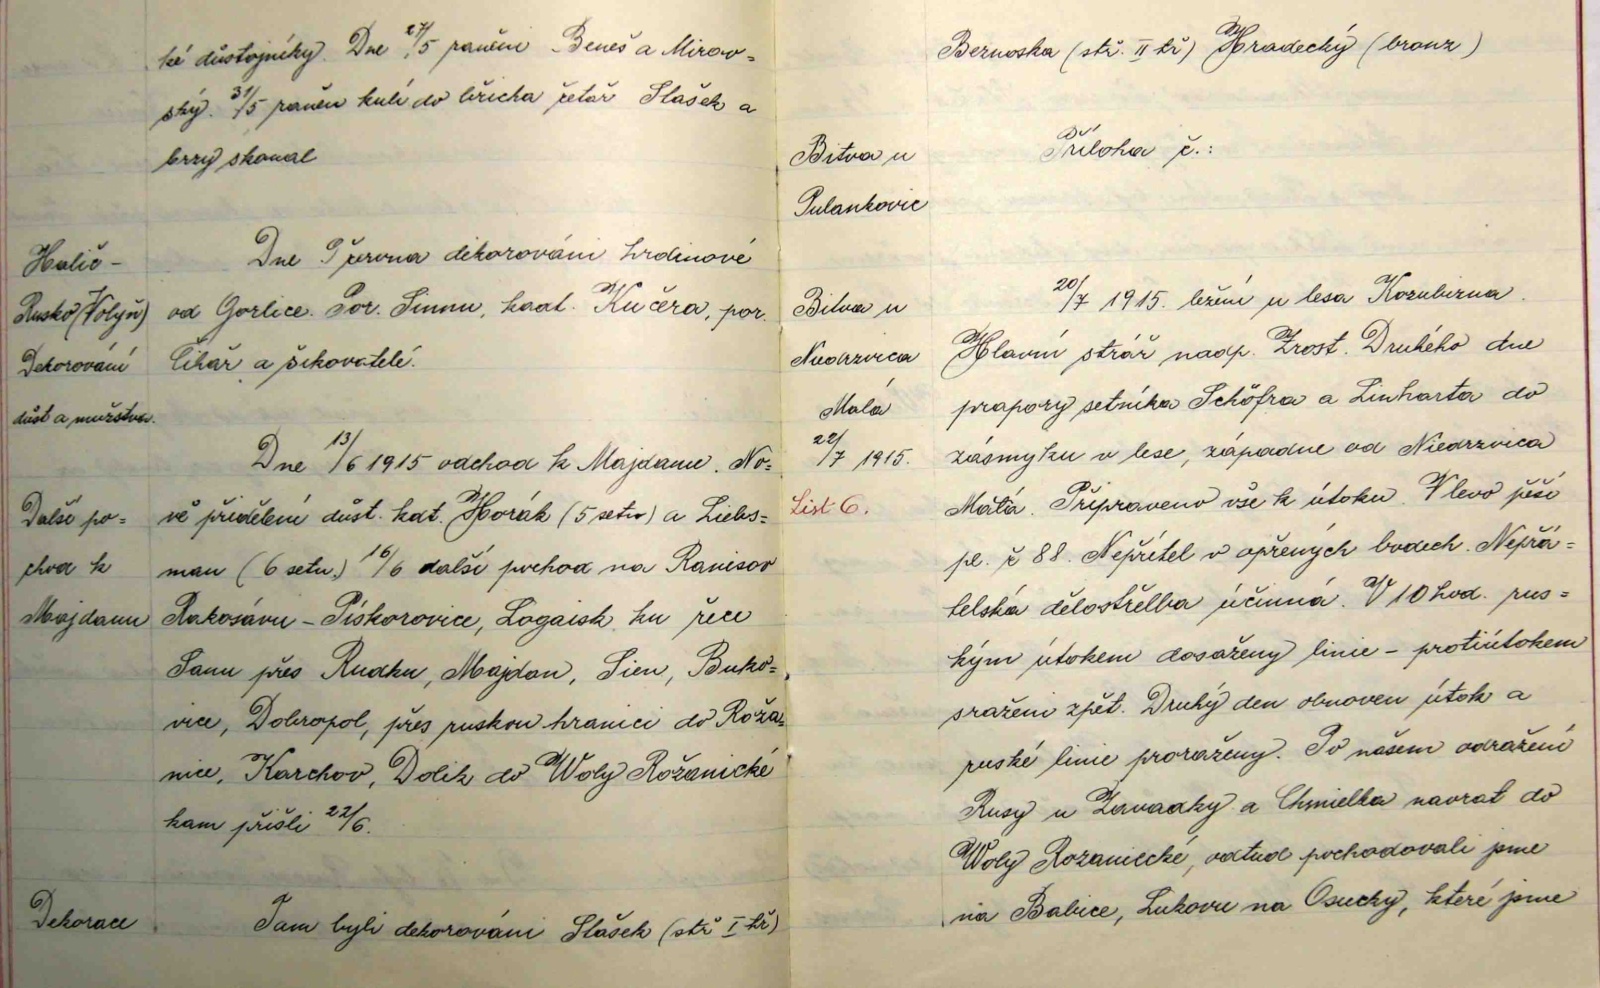 ké důstojníky. Dne 27/5 raněni Beneš a Mirov=
ský. 31/5 raněn kulí do břicha četař Stašek a
brzy skonal
Halič –
Rusko (Volyň)
Dekorování
důst a mužstva.
Dne 9 června dekorováni hrdinové
od Gorlice. Por. Simm, kadt. Kučera, por.
Cihář a šikovatelé.
Další po=
chod k
Majdanu
Dne 13/6 1915 odchod k Majdanu. No=
vě přiděleni důst. kdt. Horák (5 setn) a Liebs=
man (6 setn.) 16/6 další pochod na Ranisov
Rakosávu – Pískorovice, Logaisk ku řece
Sanu přes Rudku, Majdan, Sien, Buko=
vice, Dobropol, přes ruskou hranici do Roža=
nice, Karchov, Dolik do Woly Rožanické
kam přišli 22/6.
Dekorace
Tam byli dekorováni Stašek (stř I tř)
Beznoska (stř. II tř) Hradecký (bronz)
Bitva u
Pulankovic
Příloha č.:
Bitva u
Niedrzvica
Malá
22/7 1915.
List 6.
20/7 1915. ležení u lesa Kozubizna.
Hlavní stráž nadp. Zrost. Druhého dne
prapory setníka Schöfra a Linharta do
zásmyku v lese, západne od Niedrzvica
Mátá. Připraveno vše k útoku. V levo pěší
pl. č 88. Nepřítel v opřených bodech. Nepřá=
telská dělostřelba účinná. V 10 hod. rus=
kým útokem dosaženy linie – protiútokem
sraženi zpět. Druhý den obnoven útok a
ruské linie proraženy. Po našem odražení
Rusy u Zavadky a Chmielka navrat do
Woly Rozaniecké, odtud pochodovali jsme
na Babice, Lukovu na Osuchy, které jsme